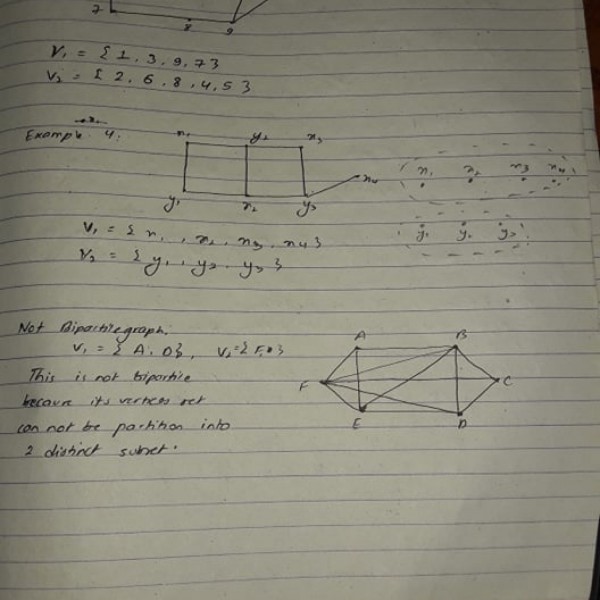 7
8
9
V₁ = { 1, 3, 9, 7 }
V₂ = { 2, 6, 8, 4, 5 }
Example 4:
x₁ y₂ x₃
x₄
y₁ x₂ y₃
x₁ x₂ x₃ x₄
y₁ y₂ y₃
V₁ = { x₁, x₂, x₃, x₄ }
V₂ = { y₁, y₂, y₃ }
Not Bipartiegraph.
V₁ = { A, D },
This is not bipartie
because its vertices set
can not be partition into
2 distinct subset.
A B
F C
E D